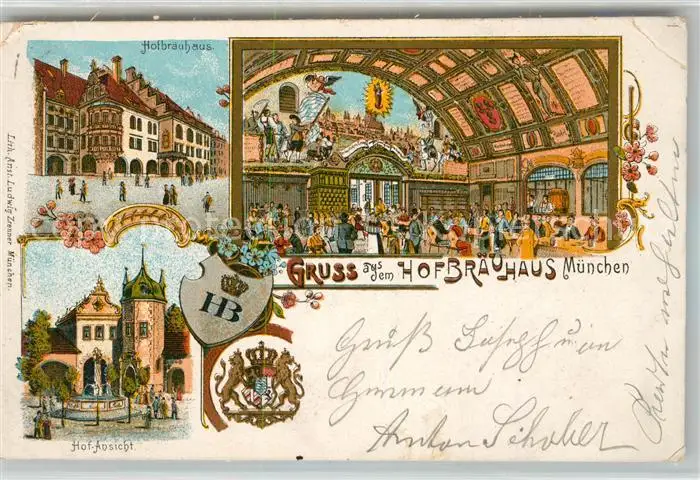 Hofbräuhaus.
GRUSS aus dem HOFBRÄUHAUS München
HB
Hof-Ansicht.
Lith. Anst. Ludwig Zrenner München.
Gruß Joseph
Anton Schober